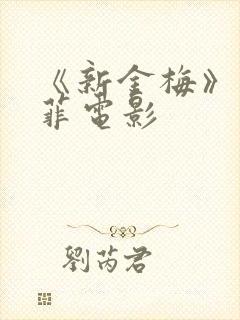 《新金梅》
菲電影
劉芮君